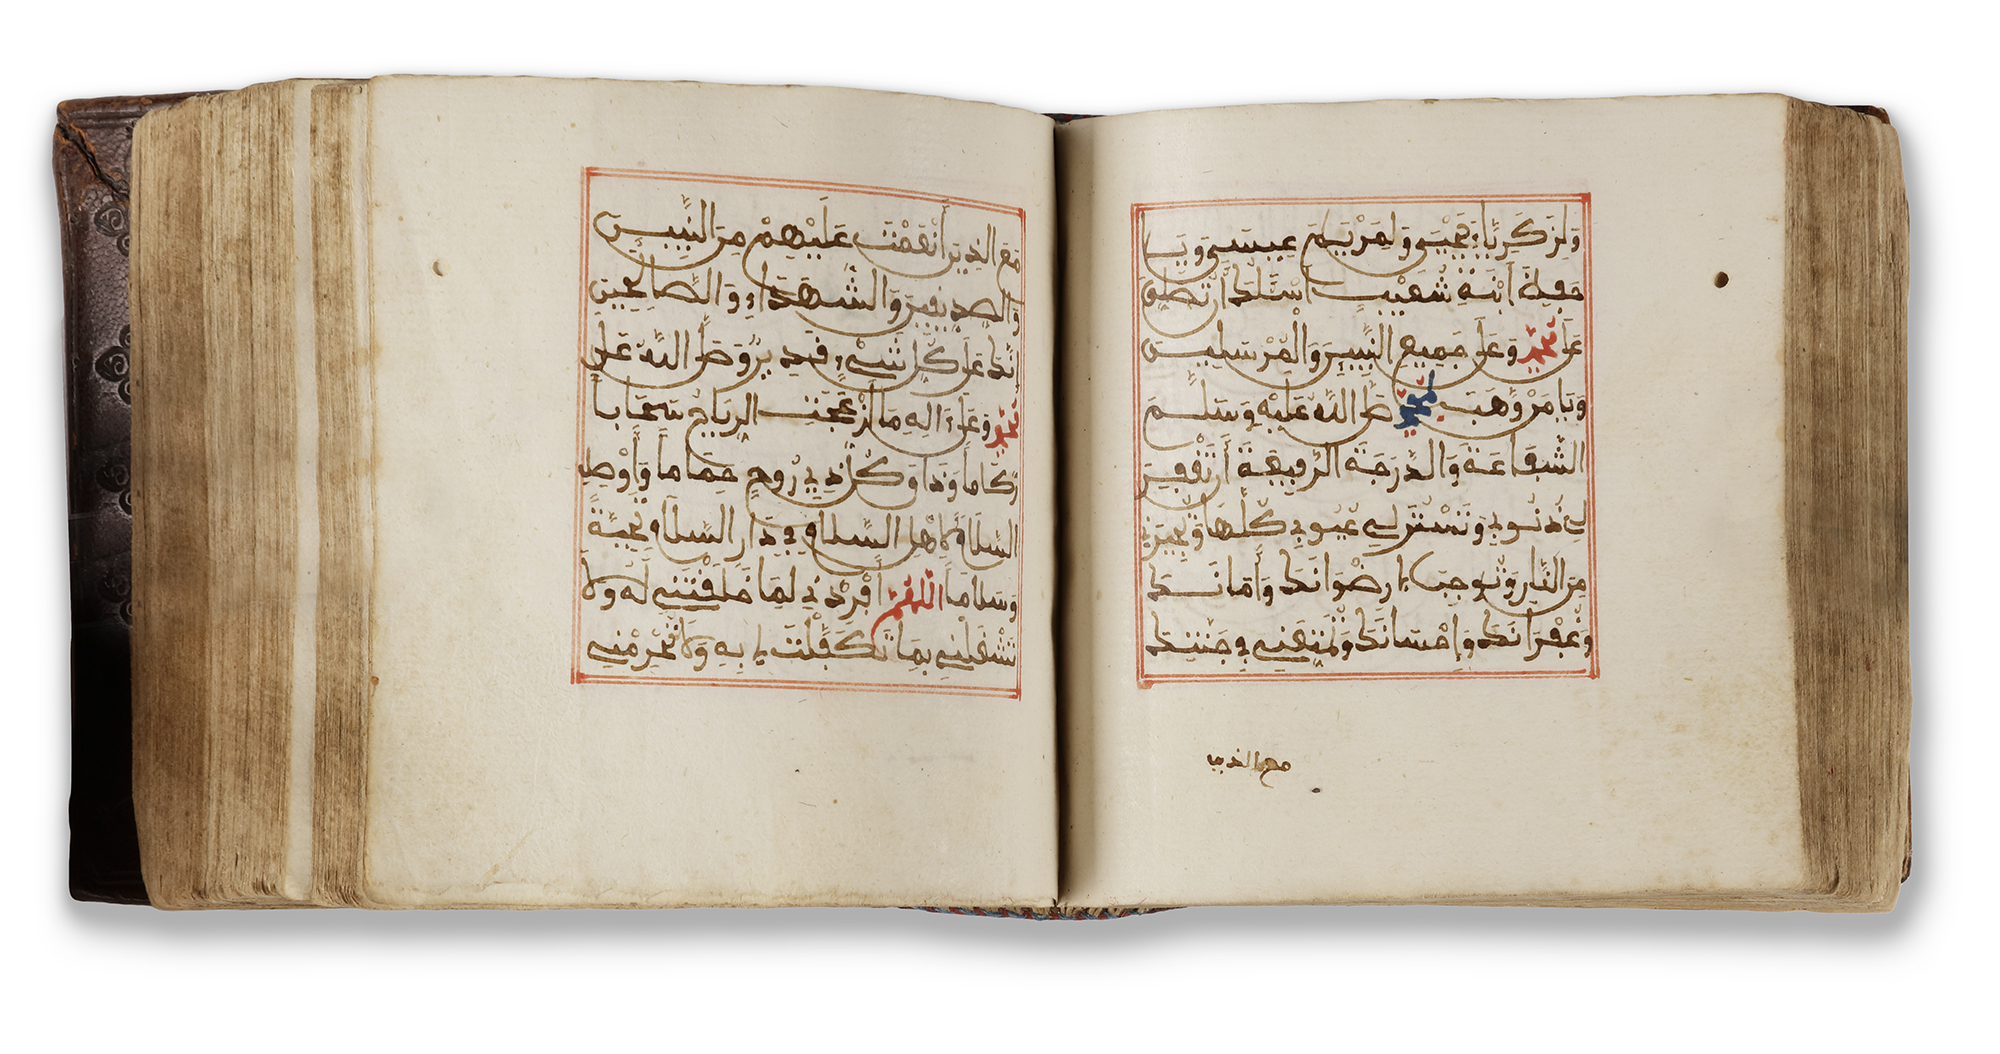 وَلِزَكَرِيَّاءَ يَحْيَى وَلِمَرْيَمَ عِيسَى وَيَا
حَافِظَ ابْنَةِ شُعَيْبٍ أَسْئَلُكَ أَن تُصَلِّيَ
عَلَى مُحَمَّدٍ وَعَلَى جَمِيعِ النَّبِيِّينَ وَالْمُرْسَلِينَ
وَيَا مَنْ وَهَبَ لِمُحَمَّدٍ صَلَّى اللَّهُ عَلَيْهِ وَسَلَّمَ
الشَّفَاعَةَ وَالدَّرَجَةَ الرَّفِيعَةَ أَن تَغْفِرَ
لِي ذُنُوبِي وَتَسْتُرَ لِي عُيُوبِي كُلَّهَا وَتُجِيرَنِي
مِنَ النَّارِ وَتُوجِبَ لِي رِضْوَانَكَ وَأَمَانَكَ
وَغُفْرَانَكَ وَإِحْسَانَكَ وَتُمَتِّعَنِي فِي جَنَّتِكَ
مع الذين
مَعَ الَّذِينَ أَنْعَمْتَ عَلَيْهِم مِنَ النَّبِيِّينَ
وَالصِّدِّيقِينَ وَالشُّهَدَاءِ وَالصَّالِحِينَ
إِنَّكَ عَلَى كُلِّ شَيْءٍ قَدِيرٌ وَصَلَّى اللَّهُ عَلَى
مُحَمَّدٍ وَعَلَى ءَالِهِ مَا أَزْعَجَتِ الرِّيَاحُ سَحَاباً
رُكَاماً وَذَاقَ كُلُّ ذِي رُوحٍ حِمَاماً وَأَوْصِلِ
السَّلَامَ لِأَهْلِ السَّلَامِ فِي دَارِ السَّلَامِ تَحِيَّةً
وَسَلَاماً اللَّهُمَّ أَفْرِدْنِي لِمَا خَلَقْتَنِي لَهُ وَلَا
تَشْغَلْنِي بِمَا تَكَفَّلْتَ لِي بِهِ وَلَا تَحْرِمْنِي